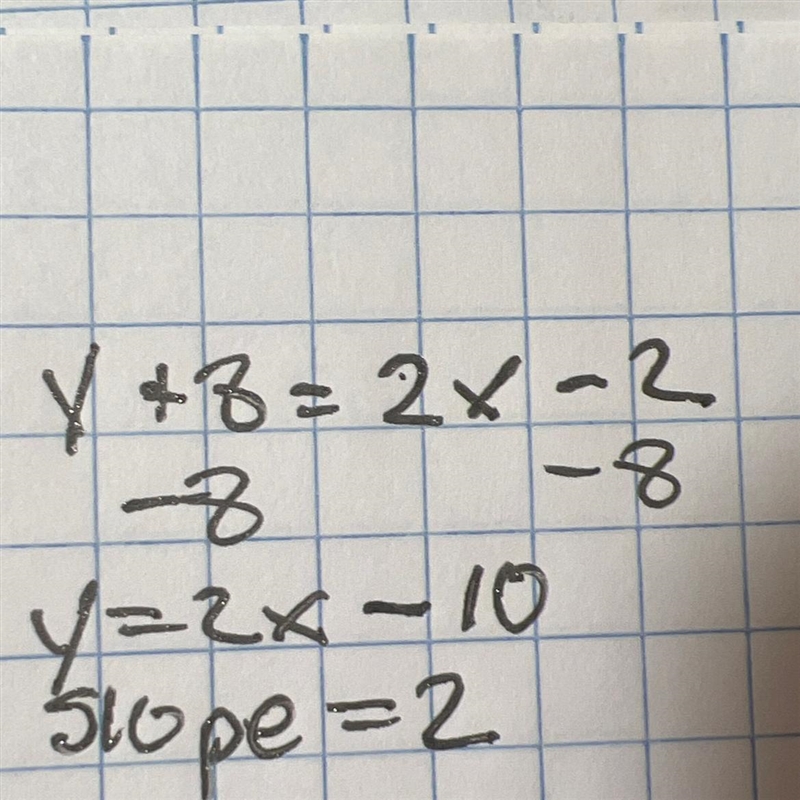 y + 8 = 2x - 2
- 8 - 8
y = 2x - 10
slope = 2